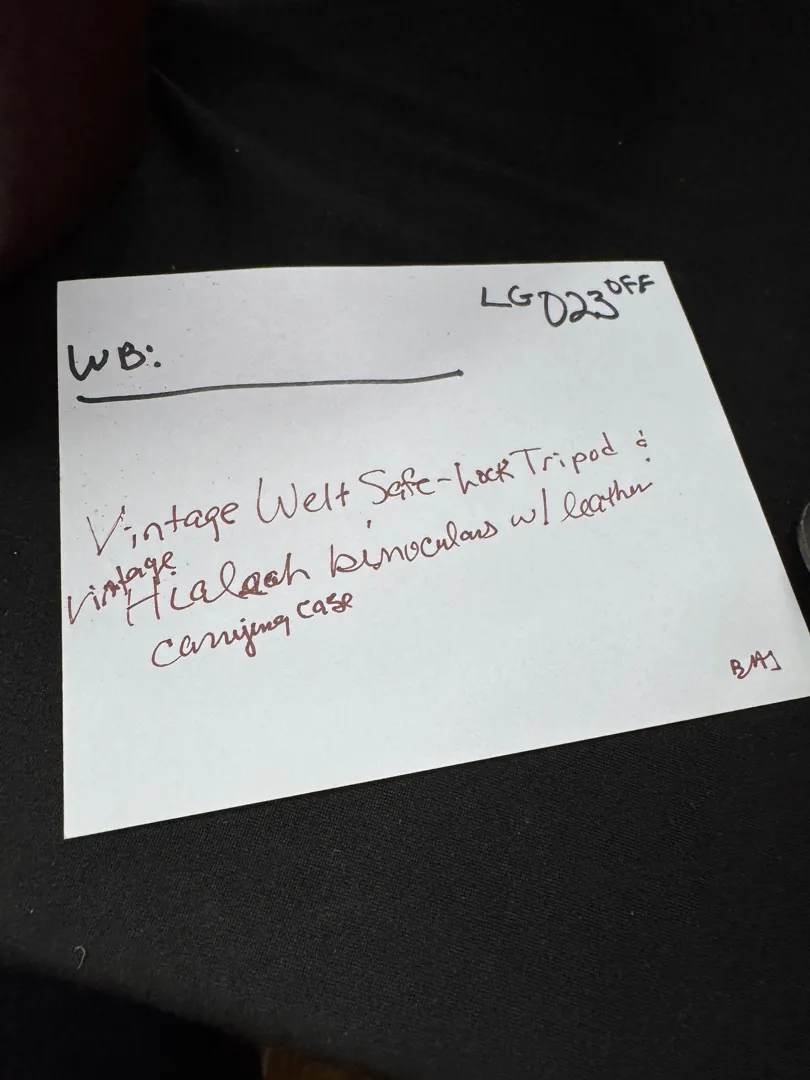 LG 023 OFF
WB:
Vintage Welt Safe-Lock Tripod &
vintage Hialeah binoculars w/ leather
carrying case